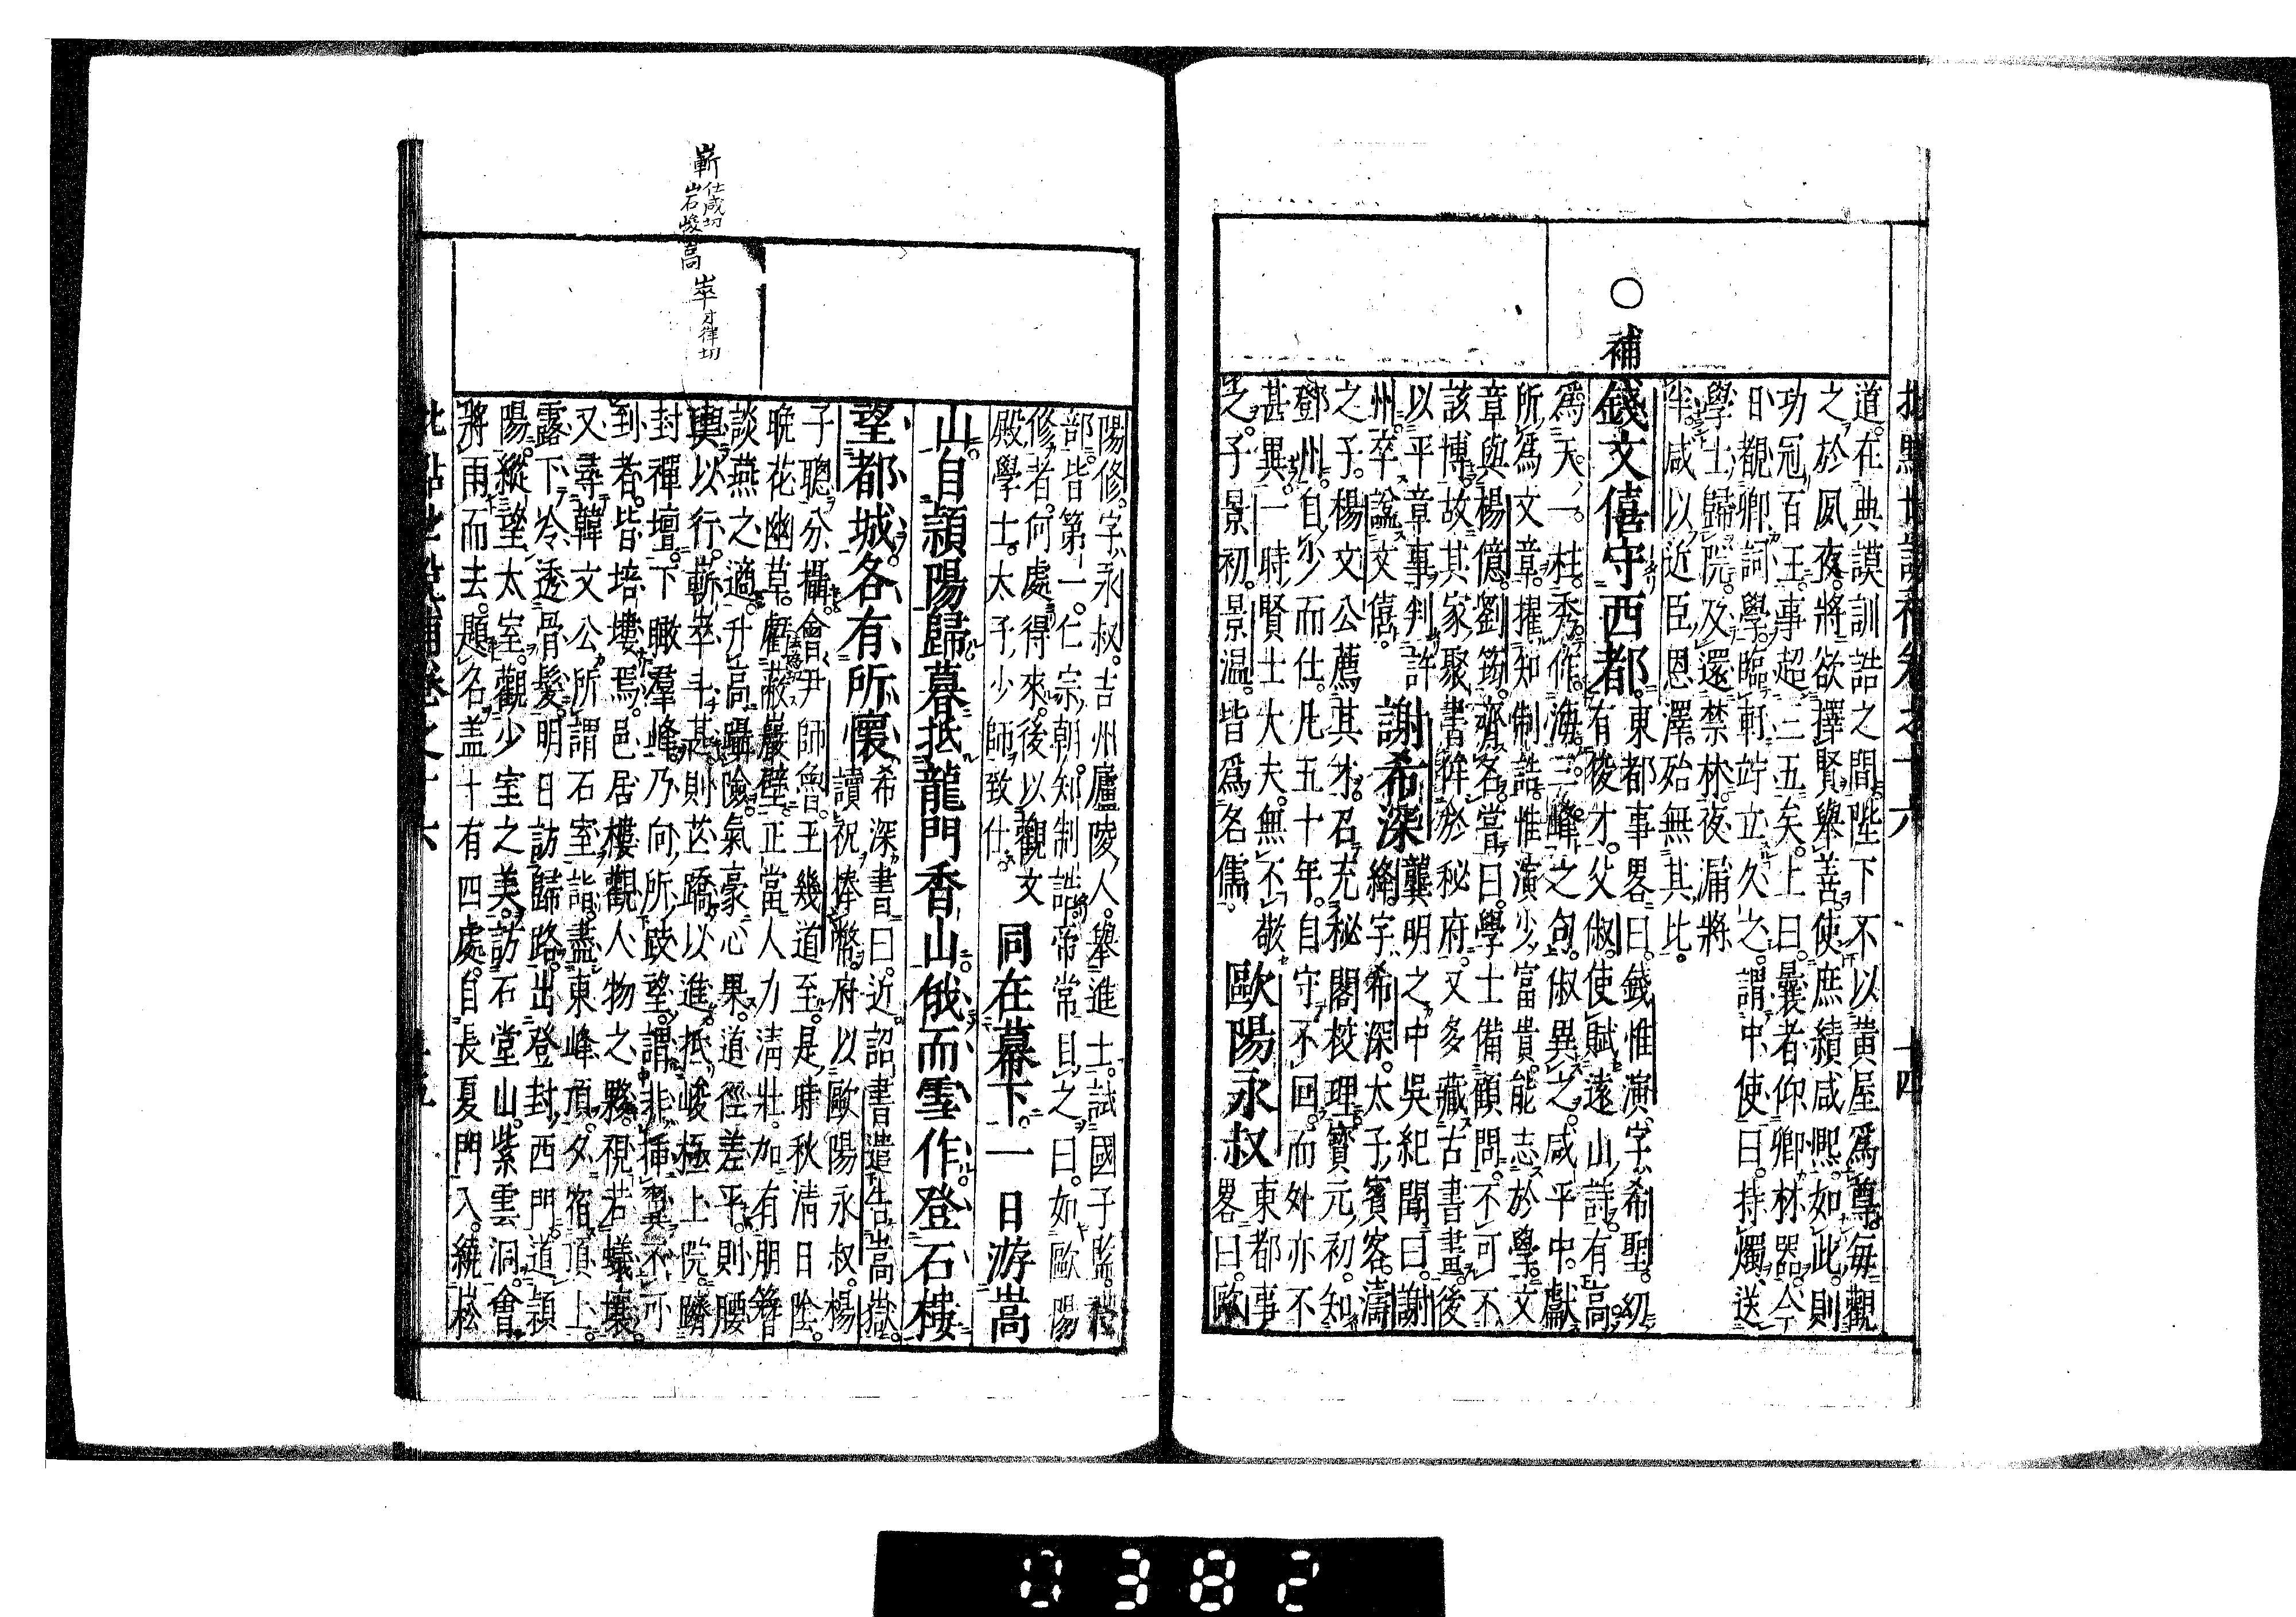 道在典謨訓誥之間陛下不以黃屋爲尊每觀
之於夙夜將欲擇賢舉善使庶績咸熙如此則
功冠百王事超三五矣上曰曩者仰卿材器今
日觀卿詞學臨軒竚立久之謂中使曰持燭送
學士歸院及還禁林夜漏將
半咸以近臣恩澤殆無其比
○補
錢文僖守西都
東都事畧曰錢惟演字希聖幼
有俊才父俶使賦遠山詩有高
爲天一柱秀作海三峰之句俶異之咸平中獻
所爲文章擢知制誥惟演少富貴能志於學文
章與楊億劉筠齊名嘗曰學士備顧問不可不
該博故其家聚書侔於秘府又多藏古書畫後
以平章事判許
州卒諡文僖
謝希深
龔明之中吳紀聞曰謝
絳字希深太子賓客濤
之子楊文公薦其才召充秘閣校理寶元初知
鄧州自少而仕凡五十年自守不回而外亦不
甚異一時賢士大夫無不敬
之子景初景温皆爲名儒
歐陽永叔
東都事
畧曰歐
陽修字永叔吉州廬陵人舉進士試國子監
部皆第一仁宗朝知制誥帝常目之曰如歐陽
修者何處得來後以觀文
殿學士太子少師致仕
同在幕下一日游嵩
山自潁陽歸暮抵龍門香山俄而雪作登石樓
望都城各有所懷
希深書曰近詔書遣告嵩嶽
讀祝捧幣府以歐陽永叔楊
子聰分攝會尹師魯王幾道至是時秋清日陰
晚花幽草虧蔽巖壁正當人力清壯加有朋簪
談燕之適升高躡險氣豪心果道徑差平則腰
輿以行嶄崒斗甚則芒蹻以進抵峻極上院躋
封禪壇下瞰羣峰乃向所跂望謂非插翼不可
到者皆培塿焉邑居樓觀人物之夥視若蟻壤
又尋韓文公所謂石室詣盡東峰頂夕宿頂上
露下冷透骨髮明日訪歸路出登封西門道潁
陽縱望太室觀少室之美訪石堂山紫雲洞會
將雨而去題名盖十有四處自長夏門入繞崧
嶄仕咸切
山石峻高
崒才律切
0382